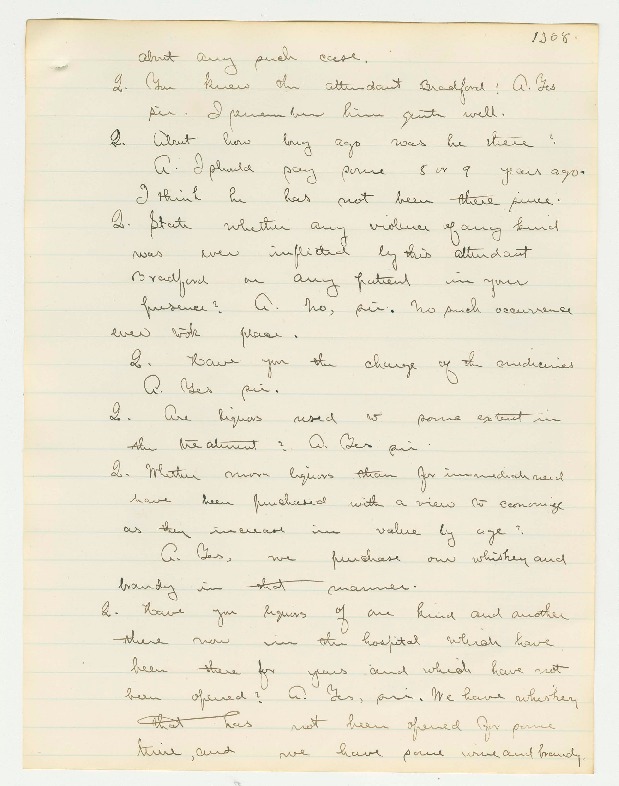 1208.
about any such case.
Q. You knew the attendant Bradford? A. Yes
sir. I remember him quite well.
Q. About how long ago was he there?
A. I should say some 8 or 9 years ago.
I think he has not been there since.
Q. State whether any violence of any kind
was ever inflicted by this attendant
Bradford on any patient in your
presence? A. No, sir. No such occurrence
ever took place.
Q. Have you the charge of the medicines
A. Yes sir.
Q. Are liquors used to some extent in
the treatment? A. Yes sir.
Q. Whether more liquors than for immediate need
have been purchased with a view to economize
as they increase in value by age?
A. Yes, we purchase our whiskey and
brandy in that manner.
Q. Have you liquors of one kind and another
there now in the hospital which have
been there for years and which have not
been opened? A. Yes, sir. We have whiskey
that has not been opened for some
time, and we have some wine and brandy.